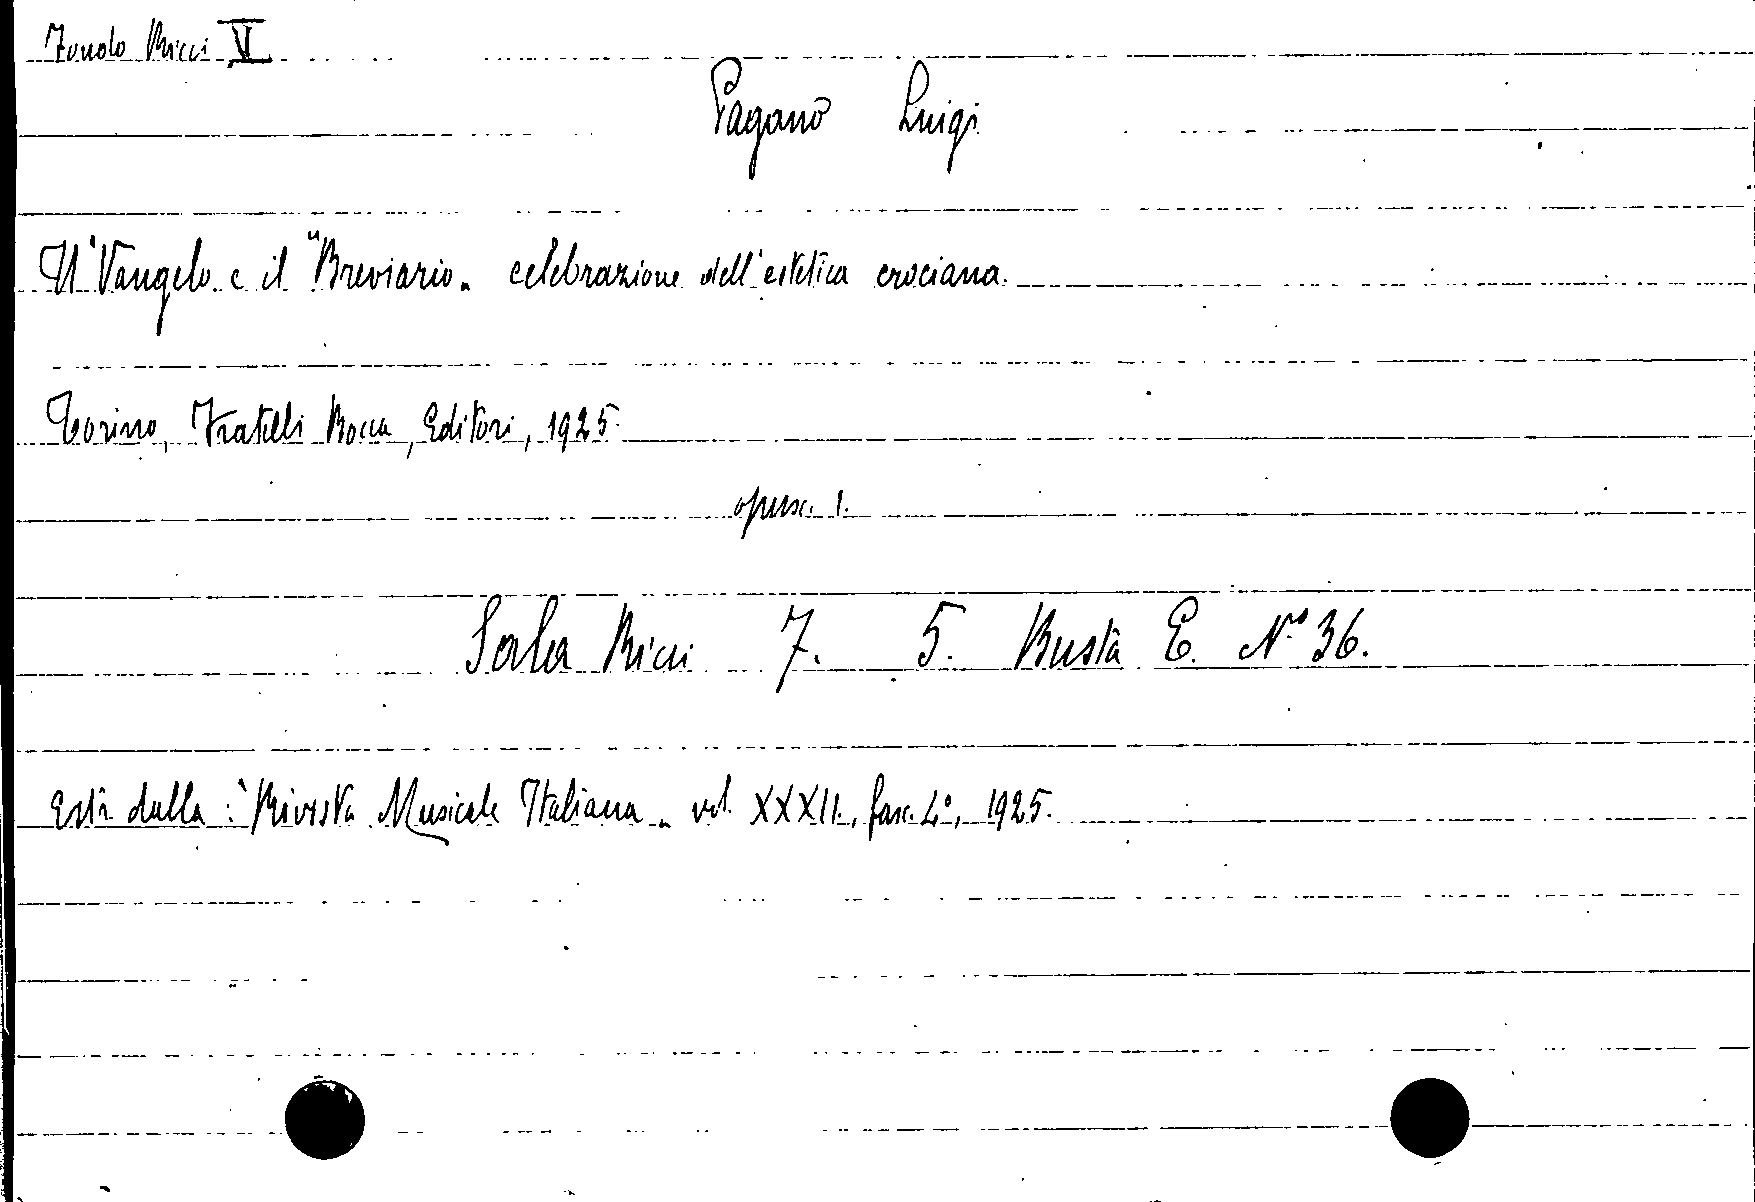 Fondo Ricci V
Pagano Luigi
Il "Vangelo e il "Breviario„ celebrazione dell'estetica crociana.
Torino, Fratelli Bocca, Editori, 1925.
opusc. 1.
Sala Ricci 7. 5. Busta E. N.º 36.
Estr. dalla: "Rivista Musicale Italiana„ vol. XXXII., fasc. 4º, 1925.